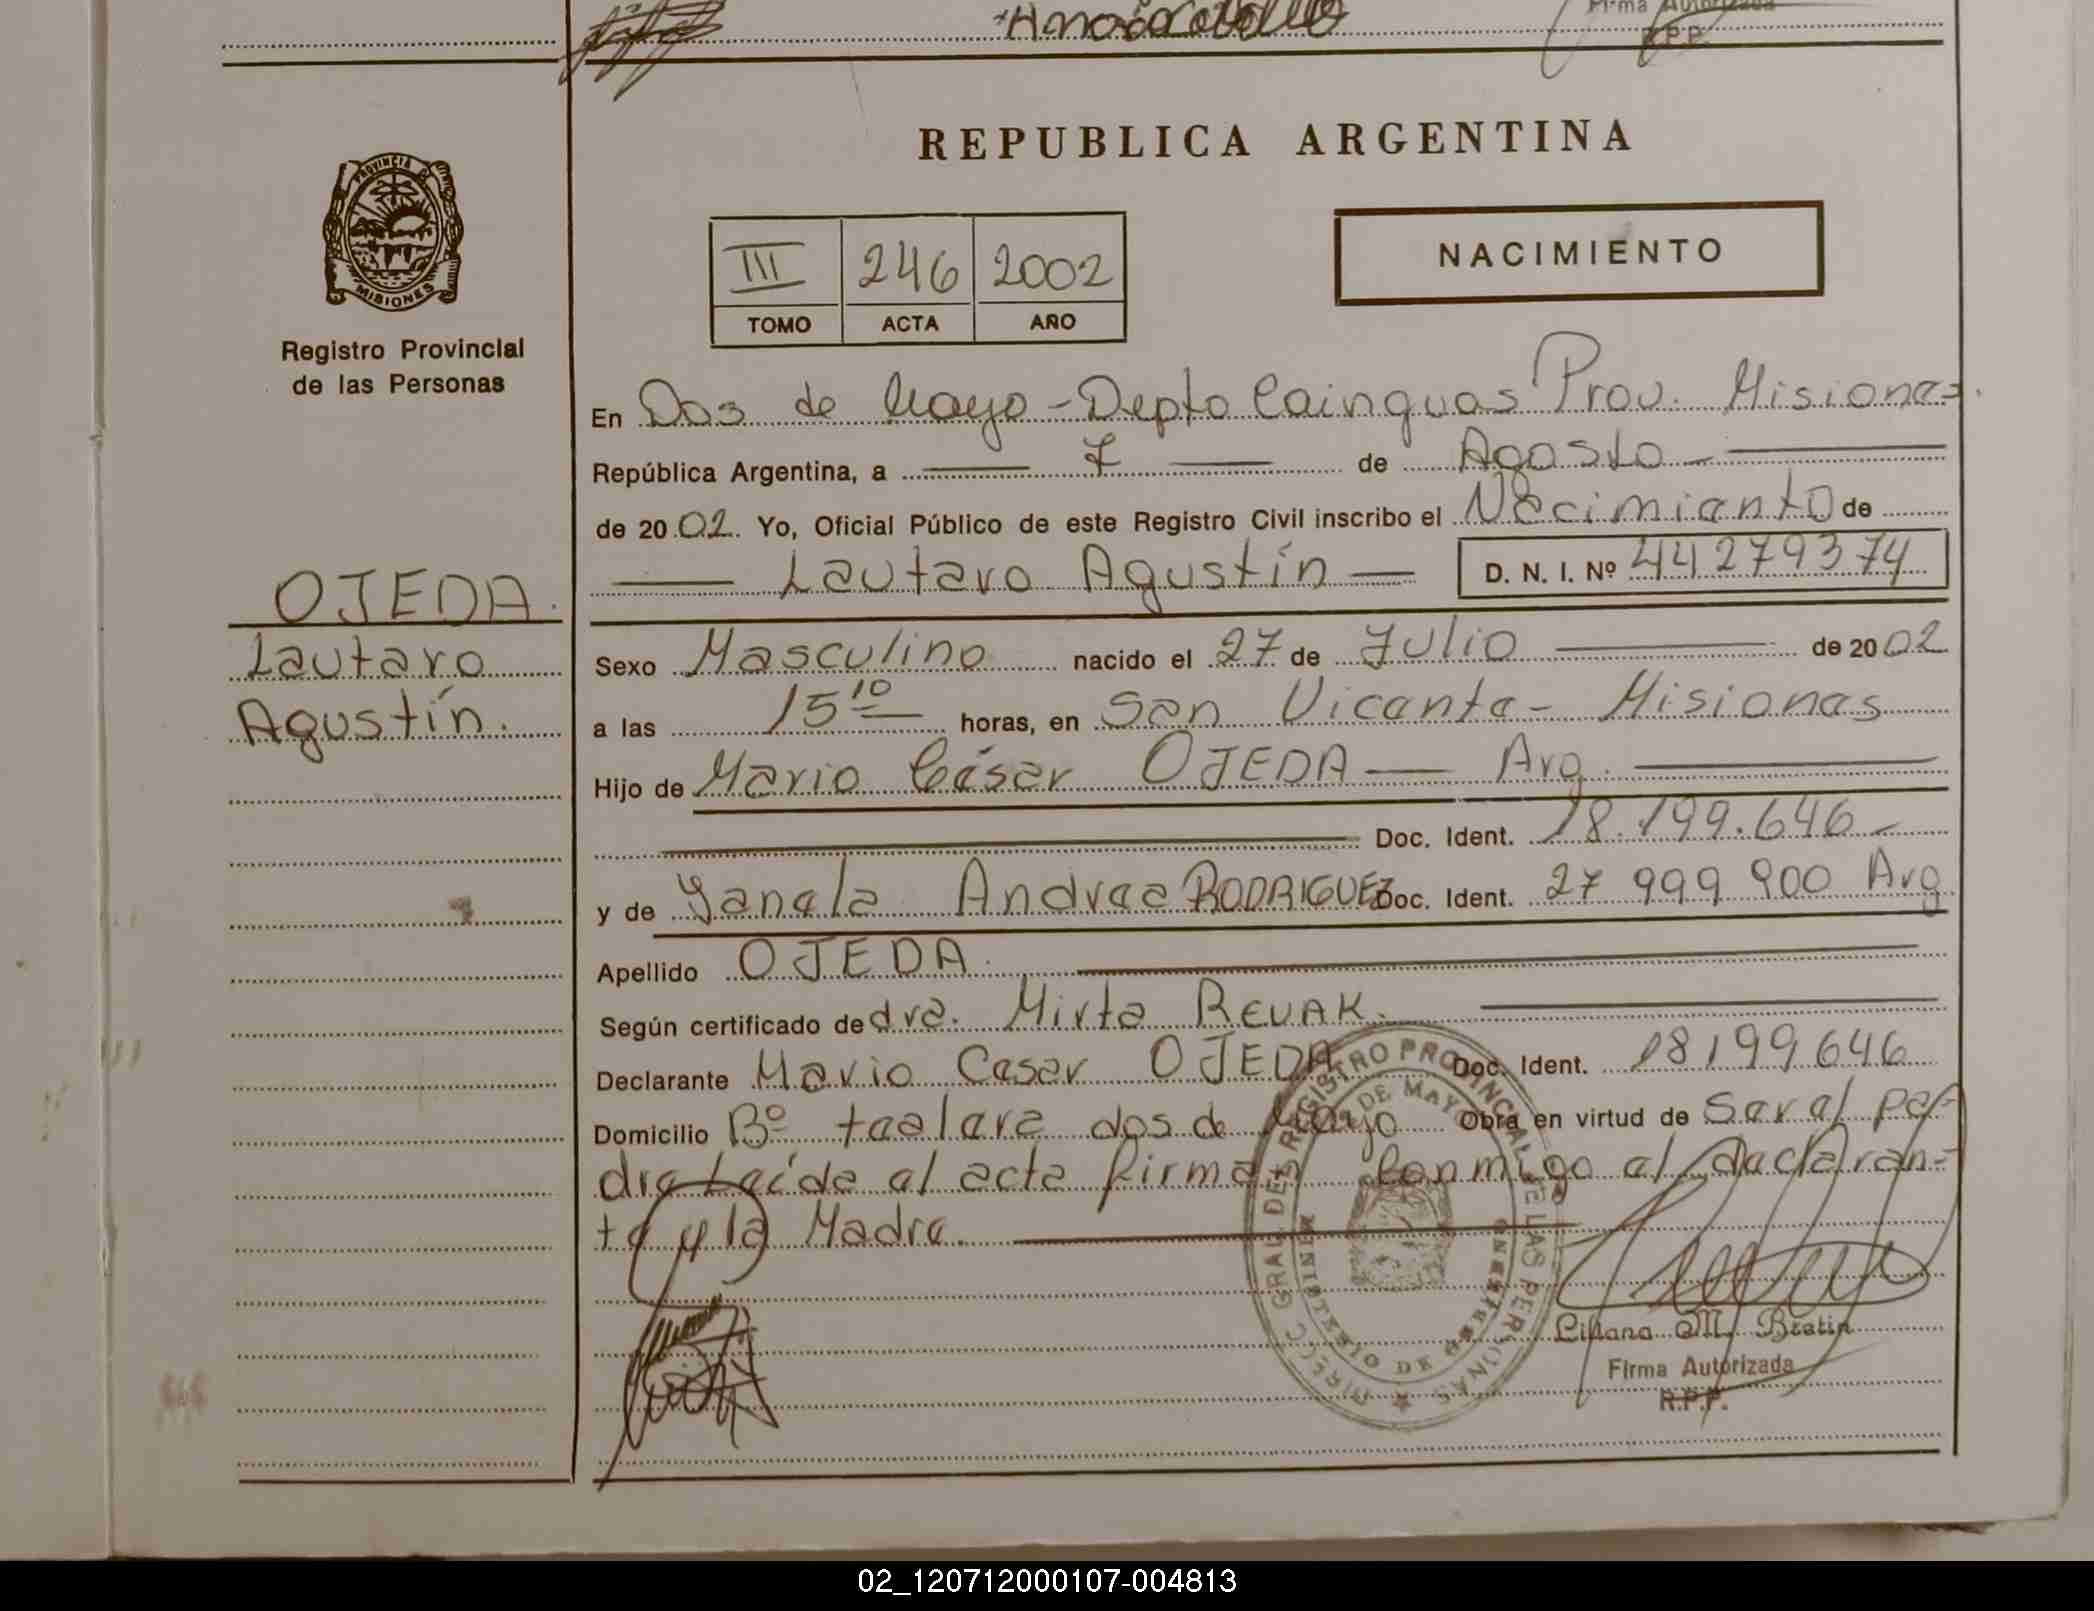 Firma Autorizada
R.P.P.
REPUBLICA ARGENTINA
PROVINCIA DE
MISIONES
Registro Provincial
de las Personas
III 246 2002
TOMO ACTA AÑO
NACIMIENTO
En Dos de Mayo - Depto Cainguas Prov. Misiones.
República Argentina, a 7 de Agosto
de 2002. Yo, Oficial Público de este Registro Civil inscribo el Nacimiento de
Lautaro Agustín D. N. I. Nº 44279374
OJEDA.
Lautaro
Agustín.
Sexo Masculino nacido el 27 de Julio de 2002
a las 15 10 horas, en San Vicente - Misiones
Hijo de Mario César OJEDA — Arg.
Doc. Ident. 18.199.646
y de Yanela Andrea RODRIGUEZ Doc. Ident. 27 999 900 Arg
Apellido OJEDA.
Según certificado de dra. Mirta REVAK.
Declarante Mario Cesar OJEDA Doc. Ident. 18199646
Domicilio Bº tealera dos de Mayo Obra en virtud de Ser el pa-
dre Leída el acta firma conmigo el declaran-
te y la Madre.
DIREC. GRAL. DEL REGISTRO PROVINCIAL DE LAS PERSONAS
DOS DE MAYO
MINISTERIO DE GOBIERNO
MISIONES
Liliana M. Bretin
Firma Autorizada
R.P.P.
02_120712000107-004813